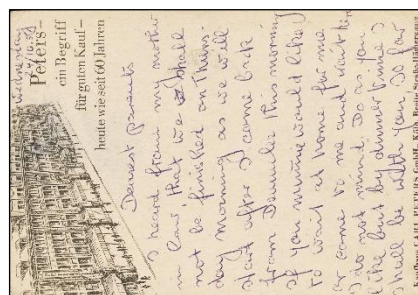 Peters –
ein Begriff
für guten Kauf –
heute wie seit 60 Jahren
Dearest parents
I heard from my mother
in law that we shall
not be finished on Thurs-
day morning as we will
start after I come back
from this morning
If you would like
to wait at home for me
or come to me and wait here
I do not mind. Do as you
like but by dinner time I
shall be with you. So far